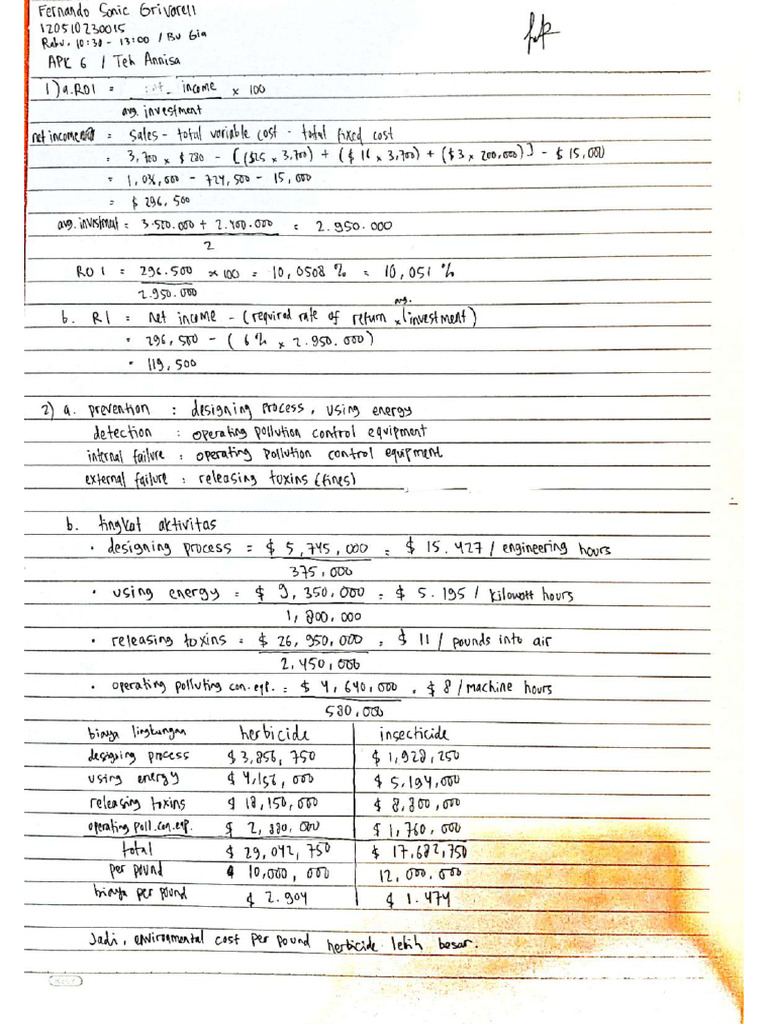 Fernando Sonic Grivarell
120510230015
Rabu, 10:30 - 13:00 / Bu Gia
APK 6 / Teh Annisa
1) a. ROI = income x 100
avg. investment
net income = Sales - total variable cost - total fixed cost
= 3,700 x $ 280 - [($25 x 3,700) + ($ 16 x 3,700) + ($3 x 200,000)] - $ 15,000
= 1,036,000 - 724,500 - 15,000
= $ 296,500
avg. invesment = 3.500.000 + 2.400.000 = 2.950.000
2
ROI = 296.500 x 100 = 10,0508 % = 10,051 %
2.950.000
b. RI = net income - (required rate of return x (avg. investment)
= 296,500 - (6% x 2.950.000)
= 119,500
2) a. prevention : designing process, using energy
detection : operating pollution control equipment
internal failure : operating pollution control equipment
external failure : releasing toxins (fines)
b. tingkat aktivitas
• designing process = $ 5,745,000 = $ 15.427 / engineering hours
375,000
• using energy = $ 9,350,000 = $ 5.195 / kilowatt hours
1,800,000
• releasing toxins = $ 26,950,000 = $ 11 / pounds into air
2,450,000
• operating polluting con. eqp. = $ 4,640,000 = $ 8 / machine hours
580,000
biaya lingkungan herbicide insecticide
designing process $ 3,856,750 $ 1,928,250
using energy $ 4,156,000 $ 5,194,000
releasing toxins $ 18,150,000 $ 8,800,000
operating poll. con. eqp. $ 2,880,000 $ 1,760,000
total $ 29,042,750 $ 17,682,750
per pound 10,000,000 12,000.000
biaya per pound $ 2.904 $ 1.474
Jadi, environmental cost per pound herbicide lebih besar.